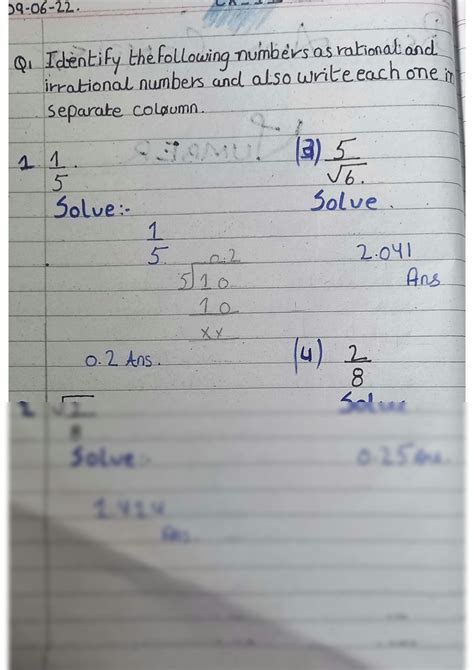 09-06-22.
Q1 Identify the following numbers as rational and
irrational numbers and also write each one in
separate coloumn.
1 1/5.
Solve:-
1/5
0.2
5 1 0
1 0
x x
0.2 Ans.
2 √2/8
Solve:-
1.414
Ans.
(3) 5/√6.
Solve.
2.041
Ans
(4) 2/8
Solve
0.25 Ans.